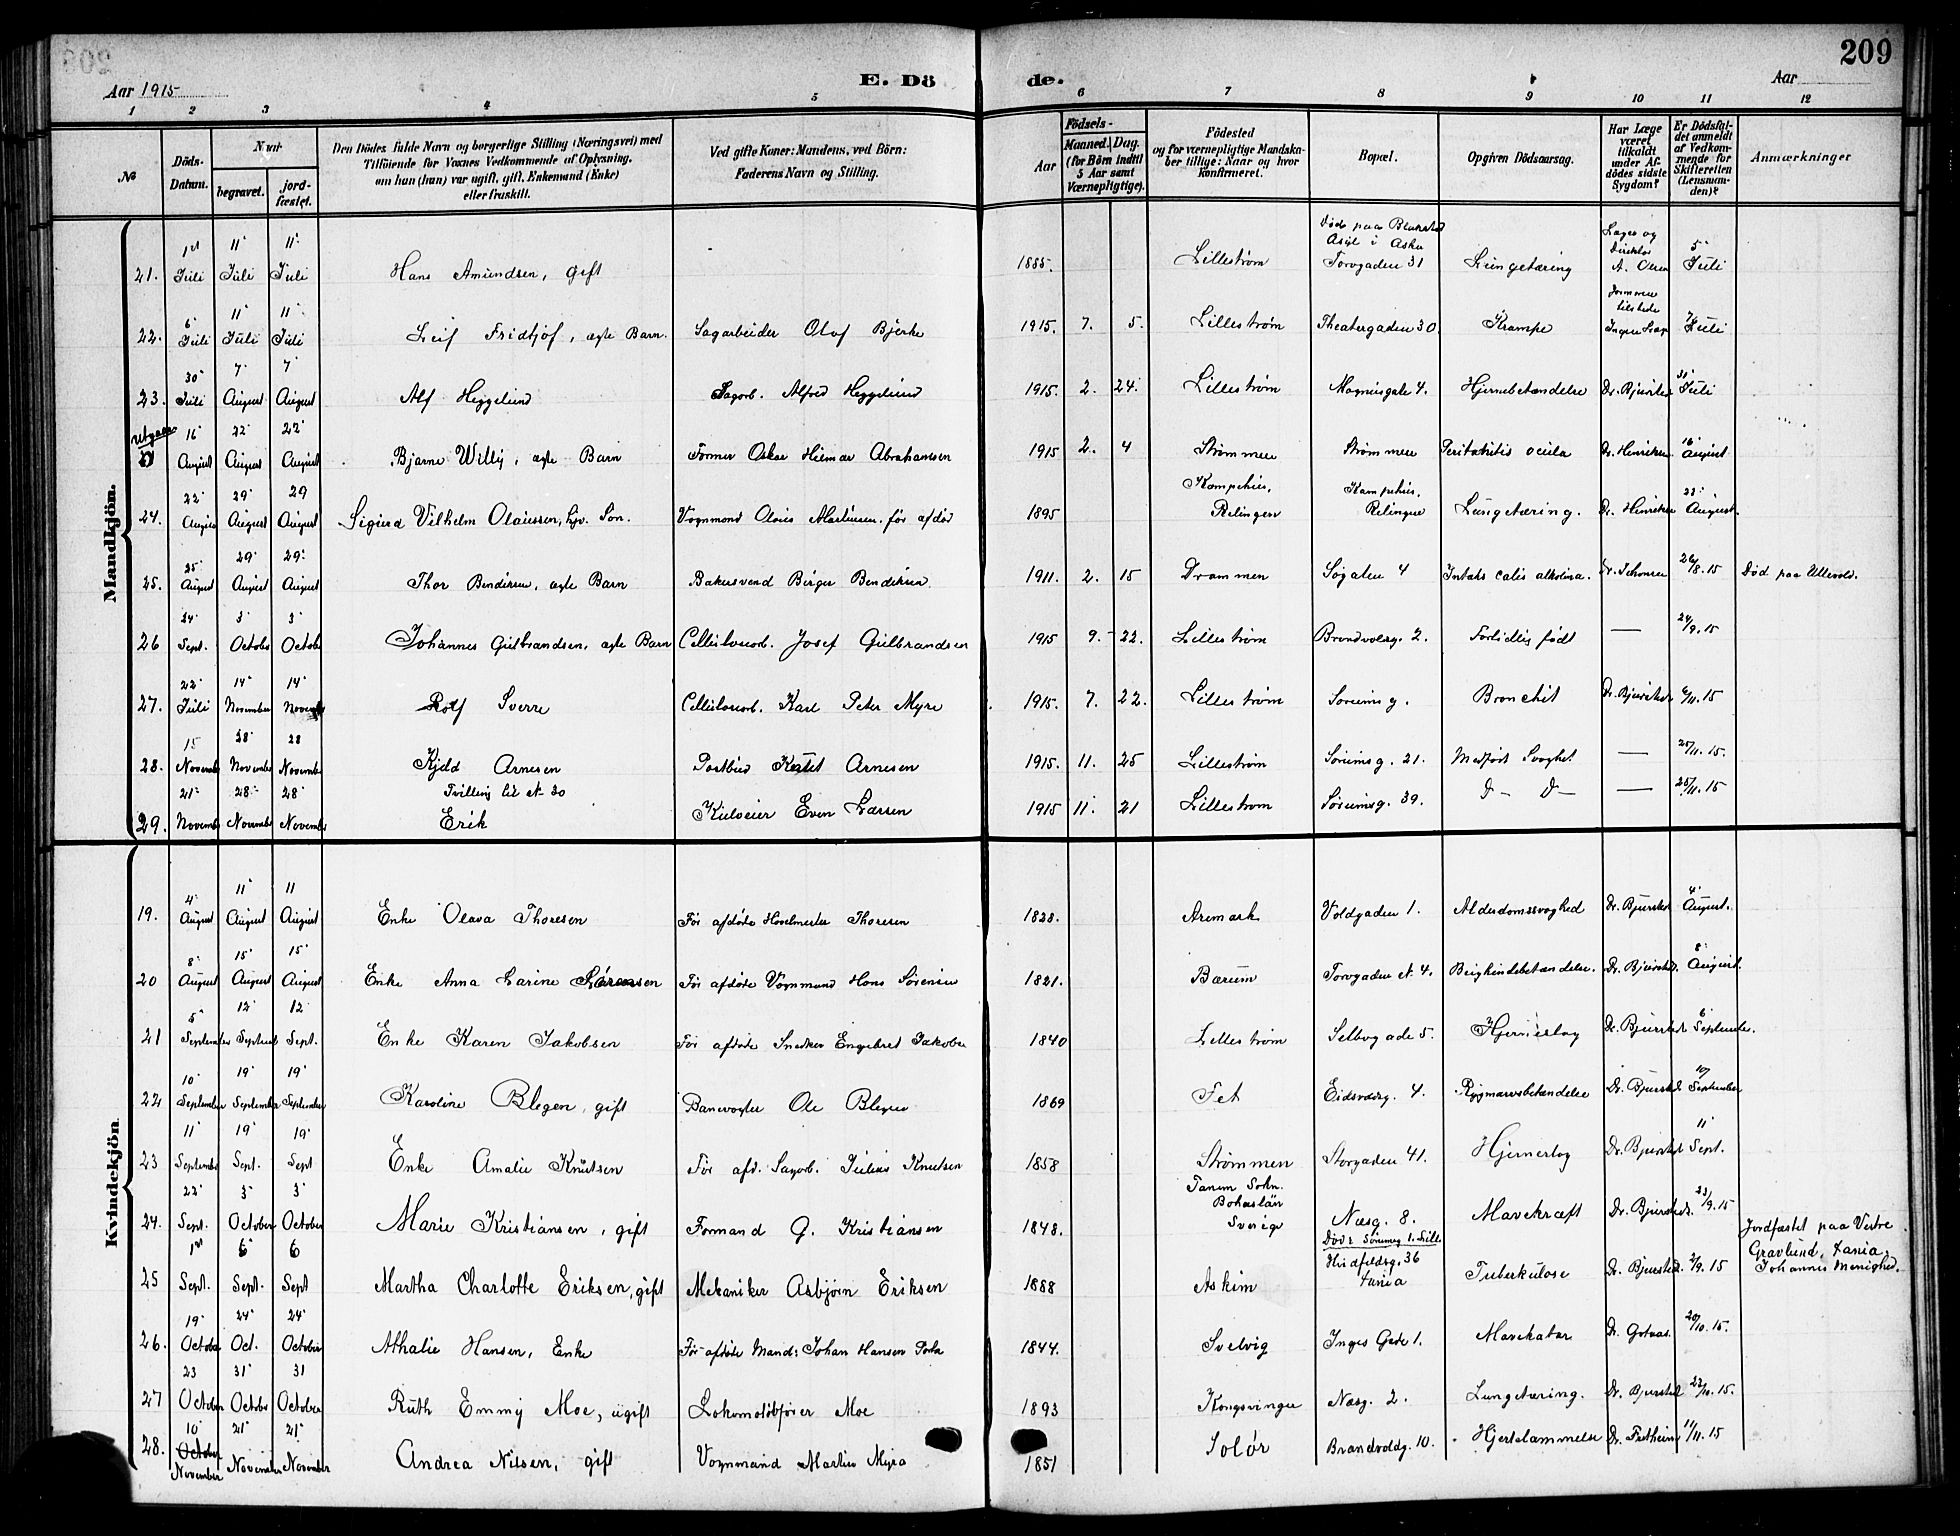 209
Aar 1915
E. Dö de.
Aar
1 2 3 4 5 6 7 8 9 10 11 12
№
Döds-Datum.
Naar
begravet.
jord-fæstet.
Den Dödes fulde Navn og borgerlige Stilling (Næringsvei) med
Tilföiende for Voxnes Vedkommende af Oplysning,
om han (hun) var ugift, gift, Enkemand (Enke)
eller fraskilt.
Ved gifte Koner: Mandens, ved Börn:
Faderens Navn og Stilling.
Födsels-
Aar
Maaned. Dag.
(for Börn indtil
5 Aar samt
Værnepligtige).
Födested
og for værnepligtige Mandska-
ber tillige: Naar og hvor
konfirmeret.
Bopæl.
Opgiven Dödsaarsag.
Har Læge
været
tilkaldt
under Af-
dödes sidste
Sygdom?
Er Dödsfal-
det anmeldt
af Vedkom-
mende for
Skifteretten
(Lensman-
den)?
Anmærkninger
Mandkjön.
21. 1st Juli 11' Juli 11' Juli Hans Amundsen, gift 1885. Lillestrøm Død paa Asyl i Asker Torvgaden 31 Lungetæring Læge og Direktør 5' Juli
22. 6' Juli 11' Juli 11' Juli Leif Fridtjof, ægte Barn. Sagarbeider Olaf Bjerke 1915. 7. 5. Lillestrøm Theatergaden 30. Krampe Ingen Læge 7' Juli
23. 30' Juli 7' August 7' August Alf Heggelund Sagarb. Alfred Heggelund 1915. 2. 24. Lillestrøm Magnusgate 4. Hjernebetændelse Dr. Bjursted 31' Juli
Utgaar 16' August 22' August 22' August Bjarne Willy, ægte Barn Former Oskar Hilmar Abrahamsen 1915 2. 4 Strømmen Strømmen Dr. Henriksen 16' August
24. 22' August 29' August 29 August Sigurd Vilhelm Olaussen, hjv. Søn. Vognmand Olaus Martinsen. før afdød 1895 Kampehus, Rælingen Kampehus, Rælingen Lungetæring. Dr. Henriksen 23' August.
25. 25' August 29' August 29' August Thor Bendiksen, ægte Barn Bakersvend Birger Bendiksen 1911. 2. 15 Drammen Søgaten 4 26/8.15 Død paa Ullevold.
26 24' Sept. 3' October 3' October Johannes Gulbrandsen, ægte Barn Cellulosearb. Josef Gulbrandsen 1915 9. - 22. Lillestrøm Brandvoldg. 2. Fortidlig født — 24/9.15
27. 22' Juli 14' November 14' November Rolf Sverre Cellulosearb. Karl Peter Myre 1915. 7. 22. Lillestrøm Sørumsg. Bronchit Dr. Bjursted 6/11.15
28. 15 November 28' November 28 November Kjell Arnesen Postbud Arnesen 1915. 11. 25 Lillestrøm Sørumsg. 21. Medfødt Svaghet — 25/11.15.
29. 21' November 28' November 28' November Tvilling til № 30 Erik Kulveier Even Larsen 1915 11. 21 Lillestrøm Sørumsg. 39. D— D— — 25/11.15
Kvindekjön.
19. 4' August 11' August 11 August Enke Olava Thoresen Før afdøde Thoresen 1828. Aremark Voldgaden 1. Alderdomssvaghed Dr. Bjursted 4' August.
20 8' August 15' August 15' August Enke Anna Larine Sørensen Før afdøde Vognmand Hans Sørensen 1821. Bærum Torvgaden № 4. Brighindebetændelse. Dr. Bjursted 8' August.
21 5' September 12 September 12 Sept. Enke Karen Jakobsen Før afdøde Snedker Engebret Jakobsen 1840 Lillestrøm Selbogade 5. Hjerneslag Dr. Bjursted 6' September.
22 10' September 19' September 19' September Karoline Blegen, gift Banevogter Ole Blegen 1869 Fet Eidsvoldg. 4. Rygmarvsbetændelse Dr. Bjursted 10/ September
23 11' September 19' Sept. 19' Sept Enke Amalie Knutsen Før afd. Sagarb. Julius Knutsen 1858 Strømmen Storgaden 41. Hjerneslag Dr. Bjursted 11 Sept.
24. 22' Sept. 3' October 3' October Marie Kristiansen, gift Formand G. Kristiansen 1848. Tanum Sokn. Bohuslän Sverige Næsg. 8. Mavekræft Dr. Bjursted. 23/9.15
25 1st Sept. 6' Sept. 6 Sept Martha Charlotte Eriksen, gift Mekaniker Asbjørn Eriksen 1888 Askim Hvidfeldsg. 36 Kania Tuberkulose Dr. Bjursted. 2/9.15 Jordfæstet paa Vestre Gravlund. Johannis Menighed.
26. 19' October 24' Oct. 24' October Athalie Hansen, Enke Før afdøde Mand: Johan Hansen 1844. Svelvig Inges Gade 1. Mavekatar Dr. Gotaas. 20/10.15.
27 23 October 31' October 31 October Ruth Emmy Moe, ugift Lokomotivfører Moe 1893 Kongsvinger Næsg. 2. Lungetæring. Dr. Bjursted 22/11.15.
28. 10' October November 21' November 21' November Andrea Nilsen, gift Vognmand Martin Myra 1851 Solør Brandvoldg. 10. Hjertelammelse Dr. Fretheim 11/11.15